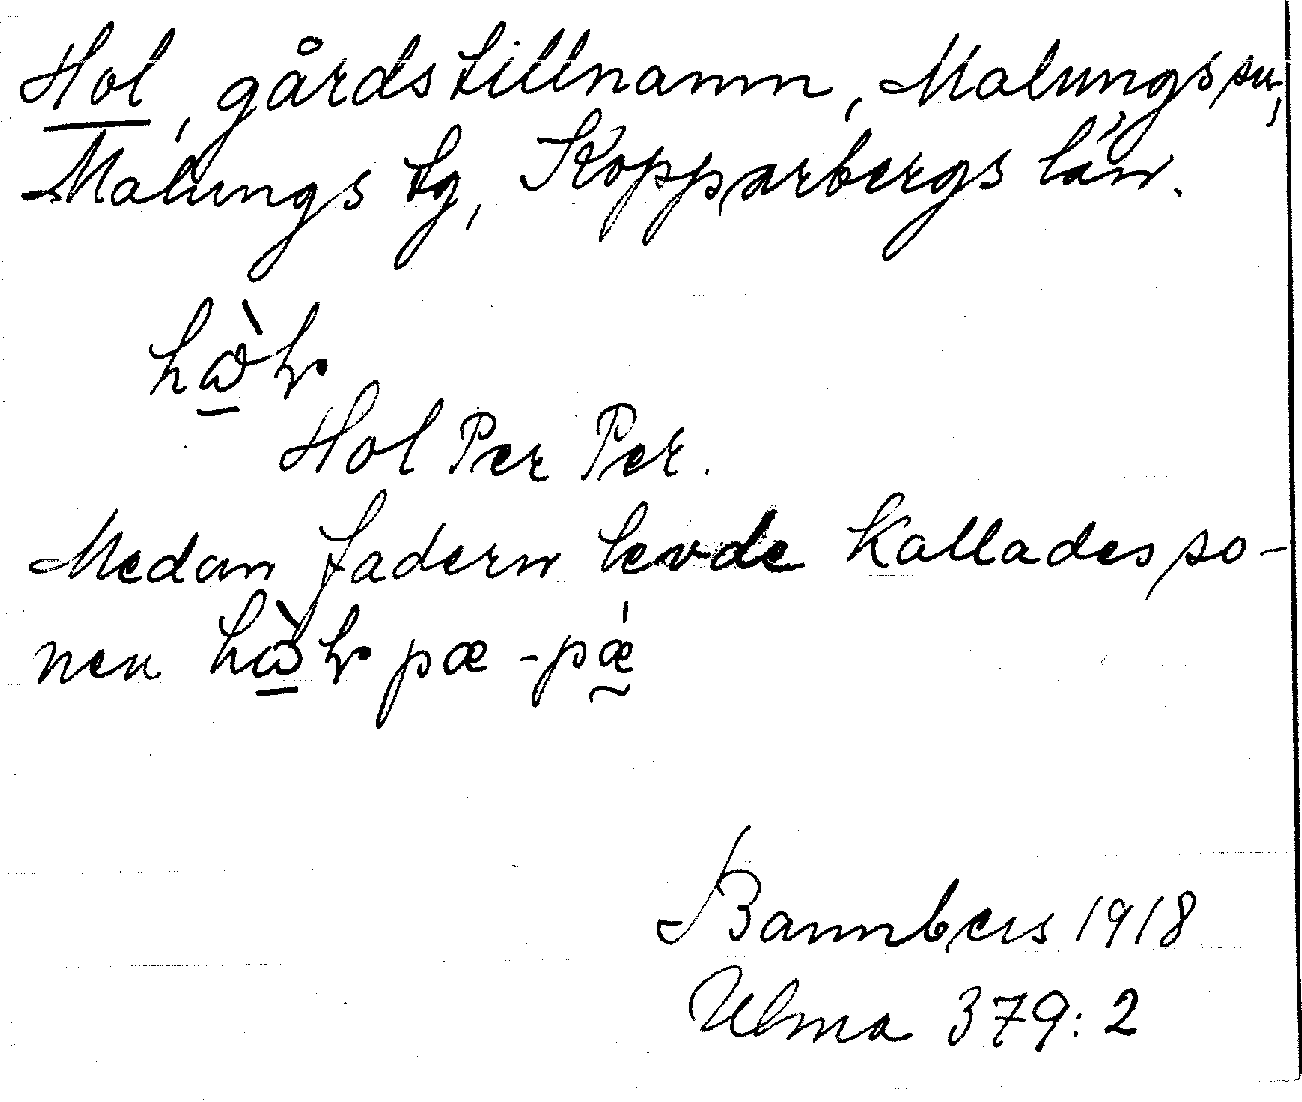 Hol, gårdstillnamn, Malungs sn,
Malungs tg, Kopparbergs län.
Hol Per Per.
Medan fadern levde kallades so-
nen pæ-pǽ
Bannbers 1918
Ulma 379:2